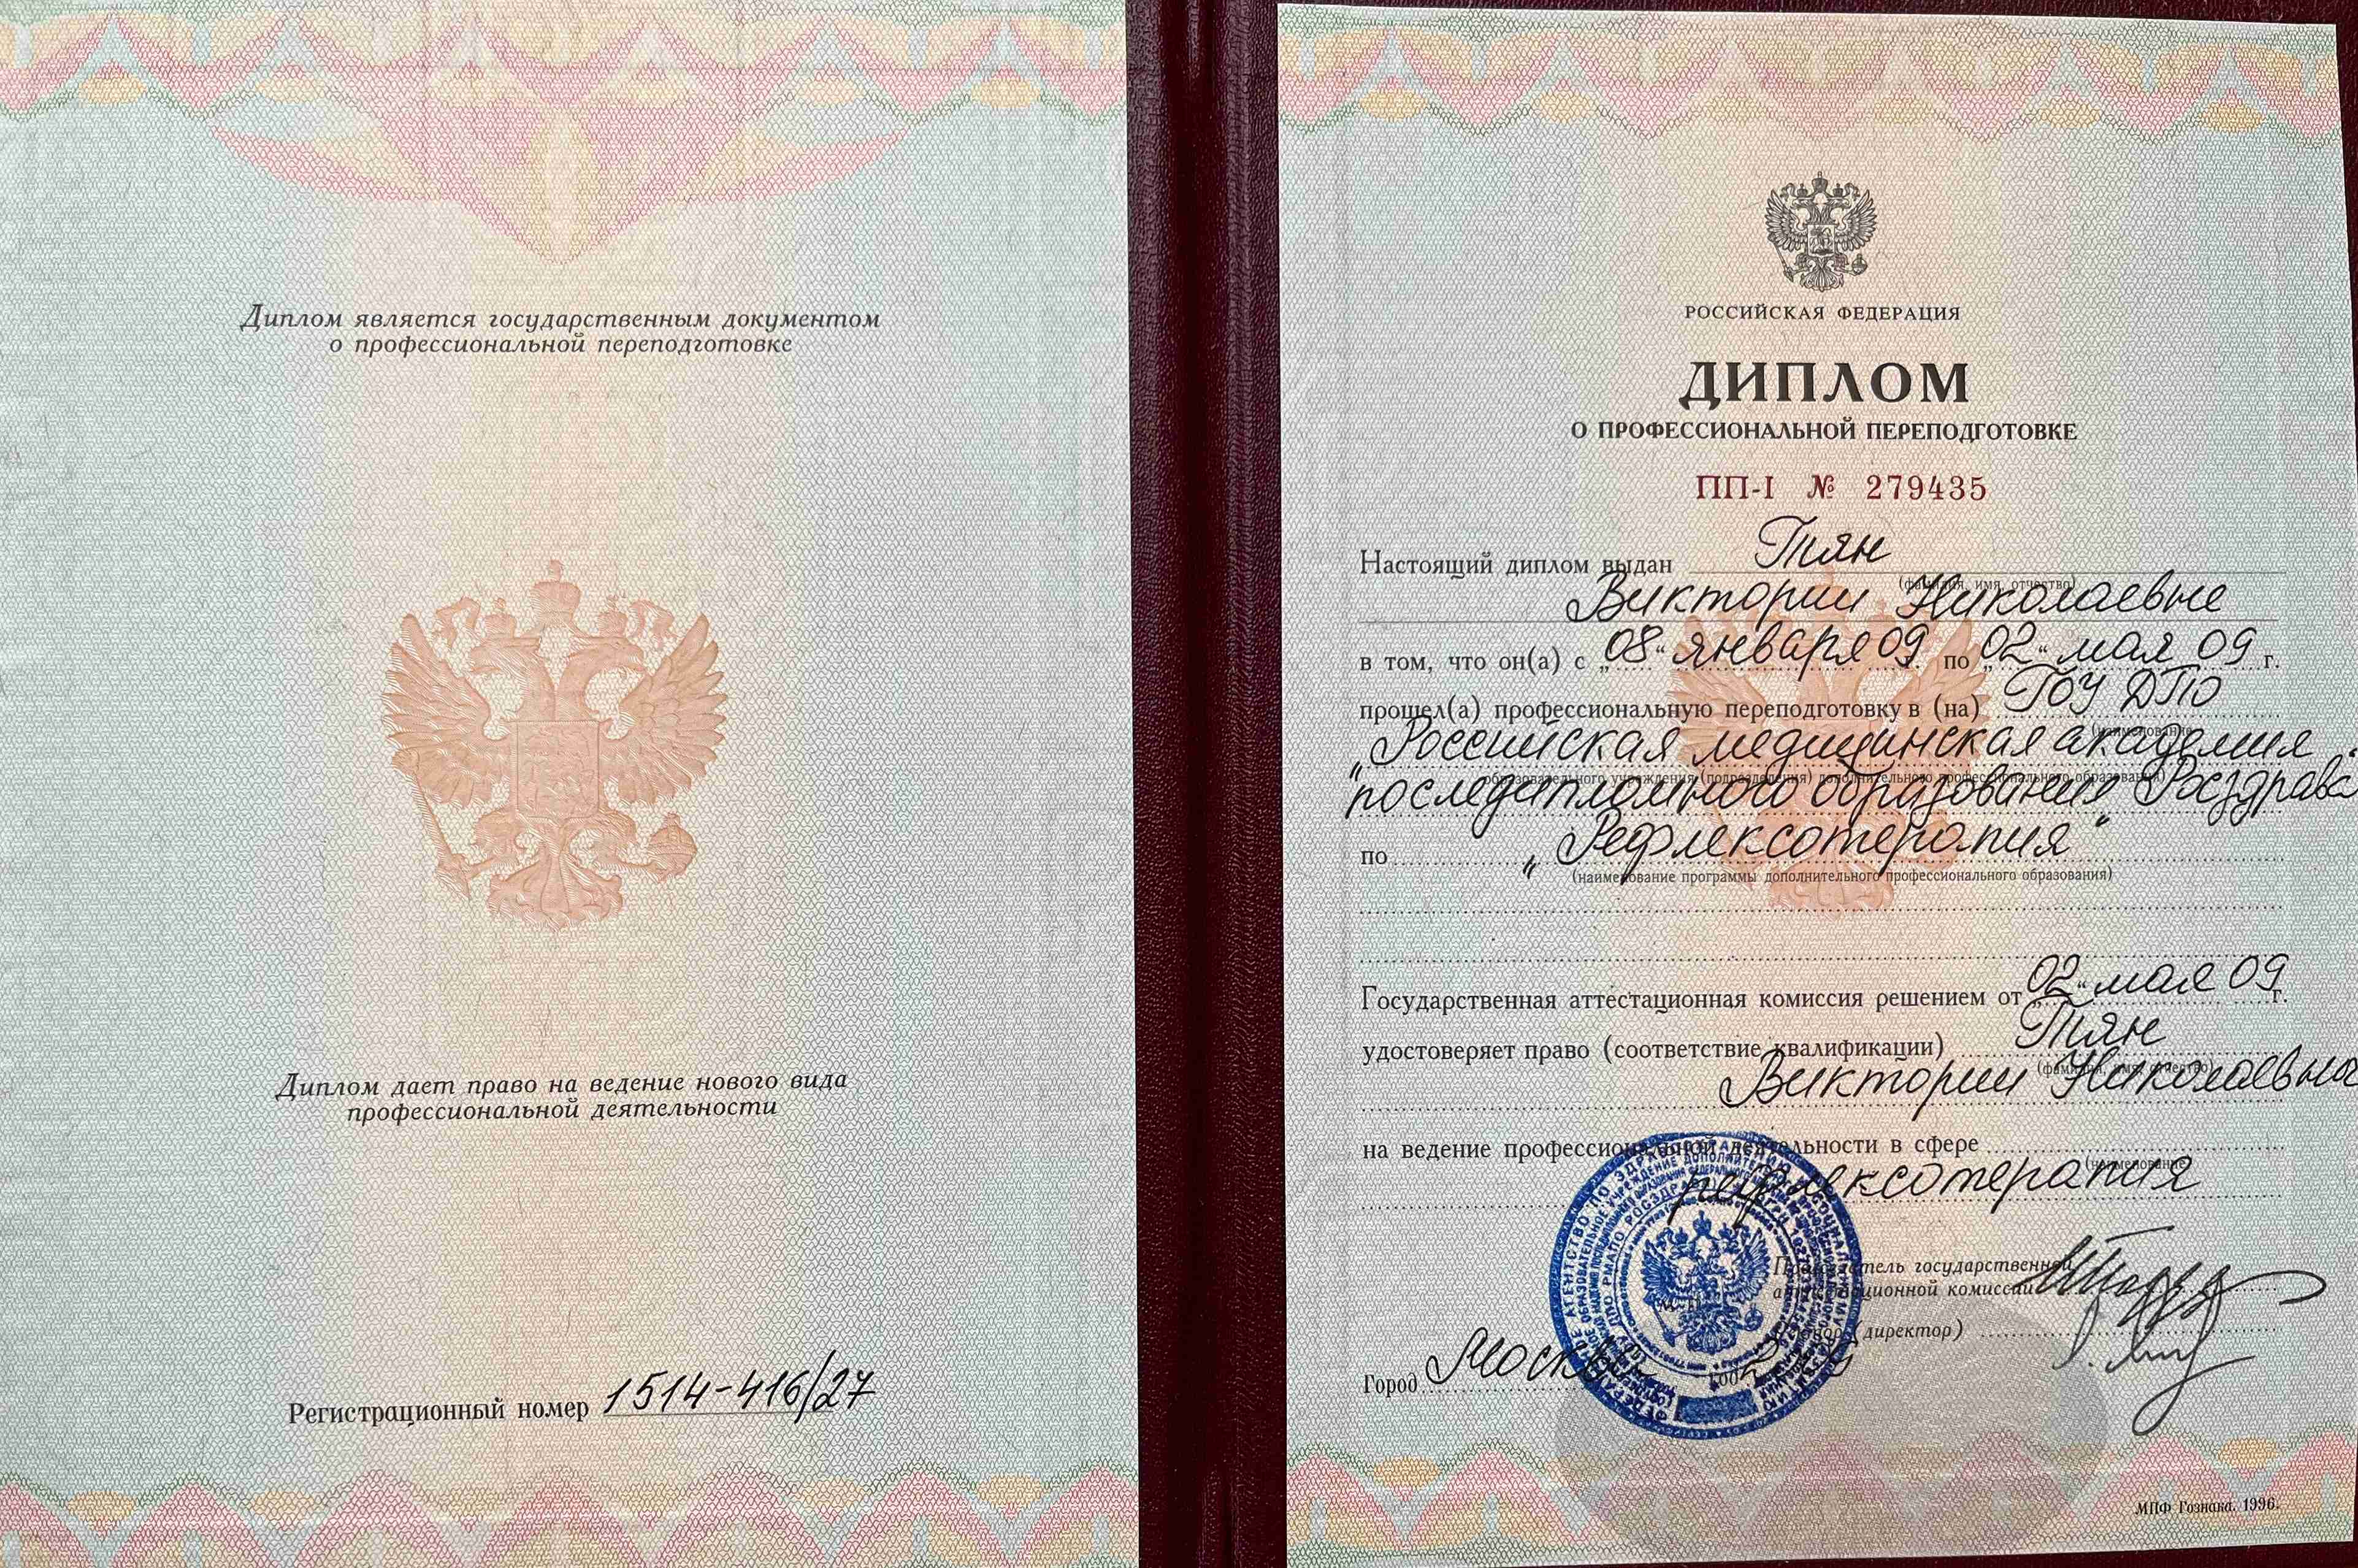 Диплом является государственным документом
о профессиональной переподготовке
Диплом дает право на ведение нового вида
профессиональной деятельности
Регистрационный номер 1514-416/27
РОССИЙСКАЯ ФЕДЕРАЦИЯ
ДИПЛОМ
О ПРОФЕССИОНАЛЬНОЙ ПЕРЕПОДГОТОВКЕ
ПП-I № 279435
Настоящий диплом выдан Тян
(фамилия, имя, отчество)
Виктории Николаевне
в том, что он(а) с „08“ января 09 по „02“ мая 09 г.
прошел(а) профессиональную переподготовку в (на) ГОУ ДПО
(наименование
„Российская медицинская академия
образовательного учреждения (подразделения) дополнительного профессионального образования)
последипломного образования Росздрава“
по „Рефлексотерапия“
(наименование программы дополнительного профессионального образования)
Государственная аттестационная комиссия решением от „02“ мая 09 г.
удостоверяет право (соответствие квалификации) Тян
(фамилия, имя, отчество)
Виктории Николаевны
на ведение профессиональной деятельности в сфере
(наименование
рефлексотерапия
Председатель государственной
аттестационной комиссии
(директор)
Город Москва
МПФ Гознака. 1996.